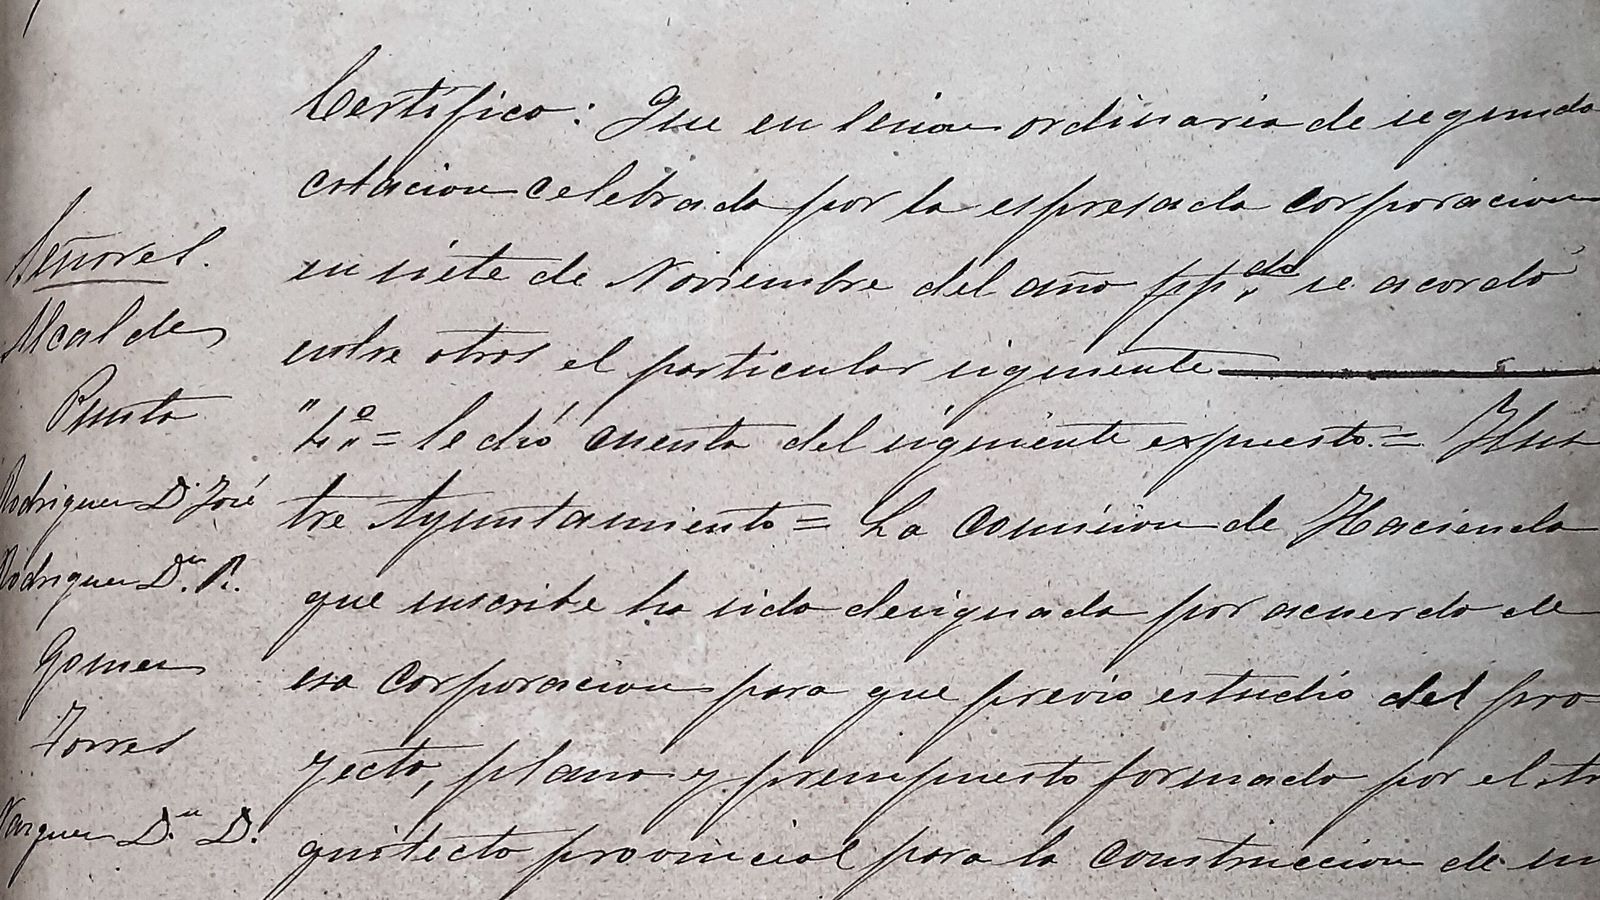 Certifico: Que en sesion ordinaria de segunda
citacion celebrada por la espresada corporacion
en siete de Noviembre del año pp.do se acordó
entre otros el particular siguiente
= Se dió cuenta del siguiente expuesto. = Ylus
tre Ayuntamiento = La Comision de Hacienda
que suscribe ha sido designada por acuerdo de
esa Corporacion para que previo estudio del pro-
yecto, plano y presupuesto formado por el Ar
quitecto provincial para la construccion de un
Señores.
Alcalde
Punto
Rodriguez D. José
Rodriguez D.n R.
Gomez
Torres
Vazquez D.n D.